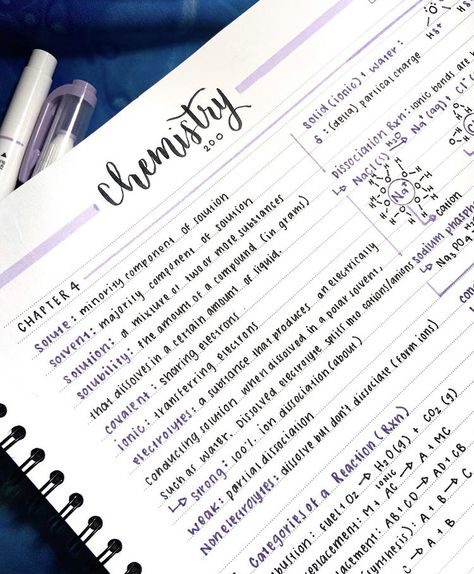 Chemistry
200
CHAPTER 4
solute: minority component of solution
solvent: majority component of solution
solution: a mixture of two or more substances
solubility: the amount of a compound (in grams)
that dissolves in a certain amount of liquid.
covalent: sharing electrons
ionic: transferring electrons
electrolytes: a substance that produces an electrically
conducting solution when dissolved in a polar solvent,
such as water. Dissolved electrolyte splits into cation/anions
↳ strong: 100% ion dissociation (about)
weak: partial dissociation
Nonelectrolytes: dissolve but don't dissociate (form ions)
Categories of a Reaction (Rxn)
bustion: fuel + O₂ → H₂O (g) + CO₂ (g)
placement: M + ionic AC → A + MC
acement: AB + CD → AD + CB
(synthesis): A + B → C
C → A + B
solid (ionic) + water:
δ: (delta) partical charge
Dissociation Rxn: ionic bonds are b
↳ NaCl (s) H₂O → Na⁺ (aq) + Cl⁻
Na⁺
↳ cation
sodium phosph